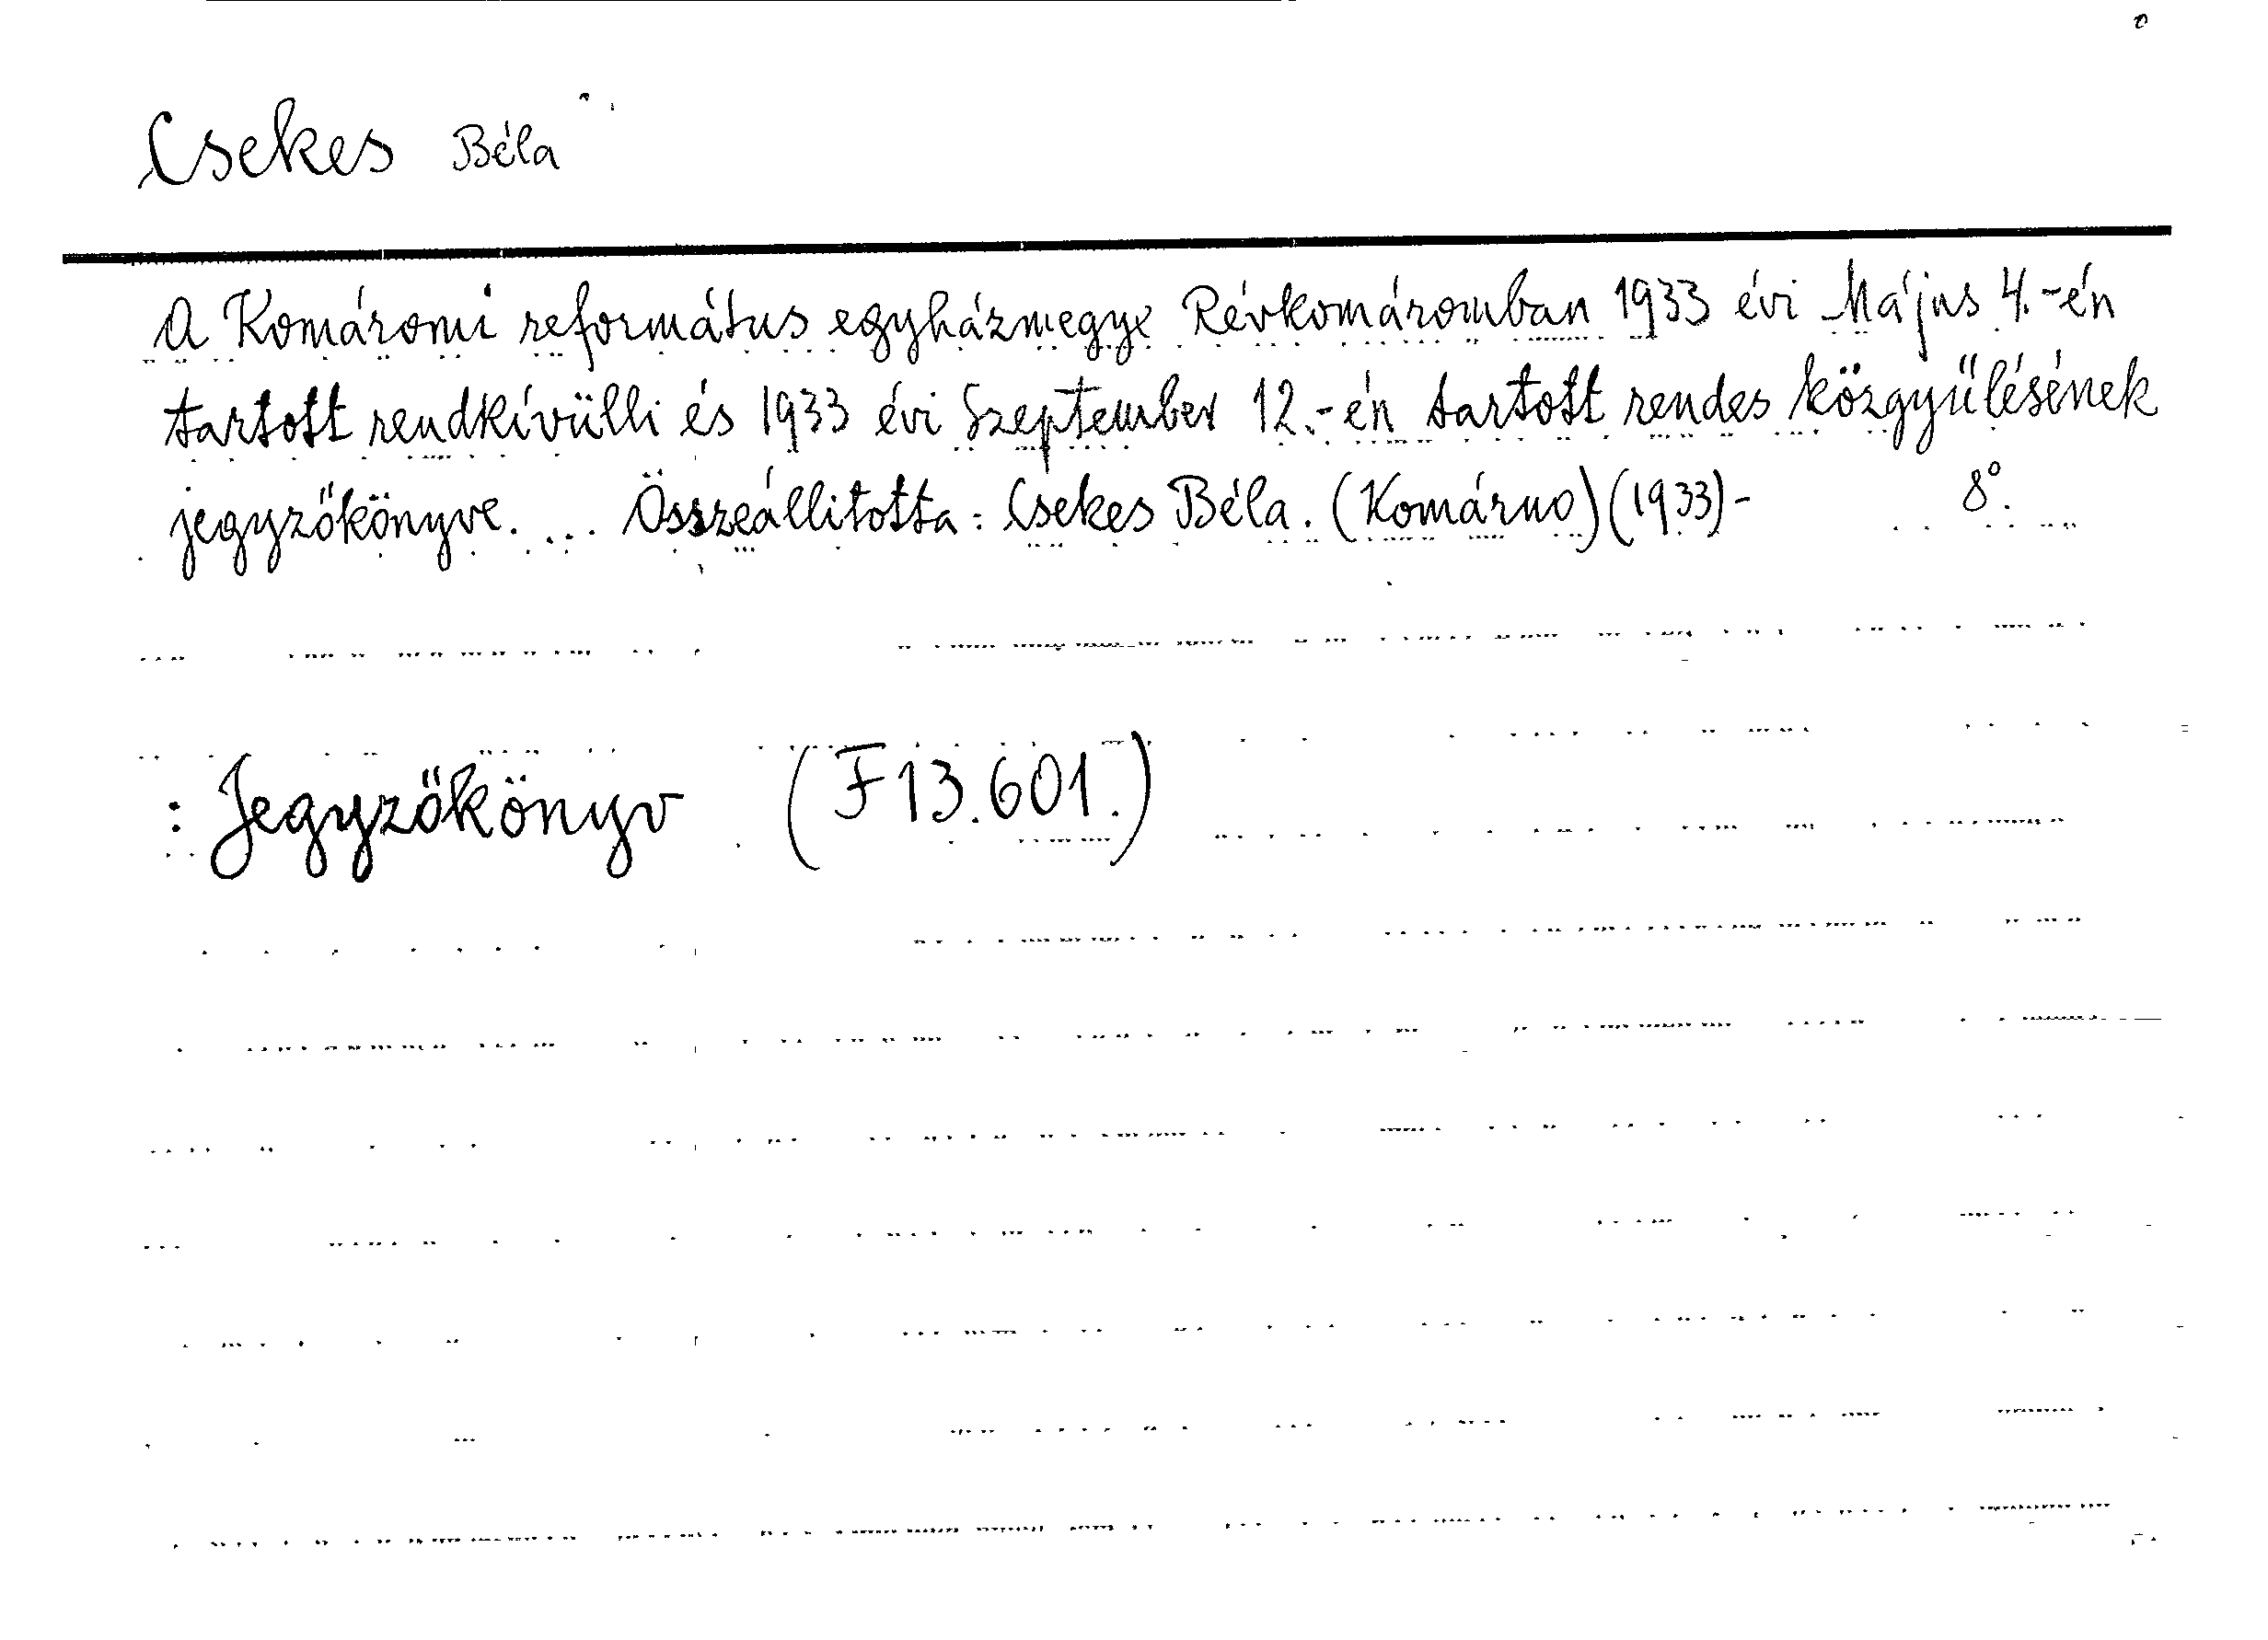 Csekes Béla
A Komáromi református egyházmegye Révkomáromban 1933 évi Május 4.-én
tartott rendkívülli és 1933 évi Szeptember 12.-én tartott rendes közgyűlésének
jegyzőkönyve. ... Összeállitotta: Csekes Béla. (Komárno) (1933)- 8°.
: Jegyzőkönyv (F 13.601.)